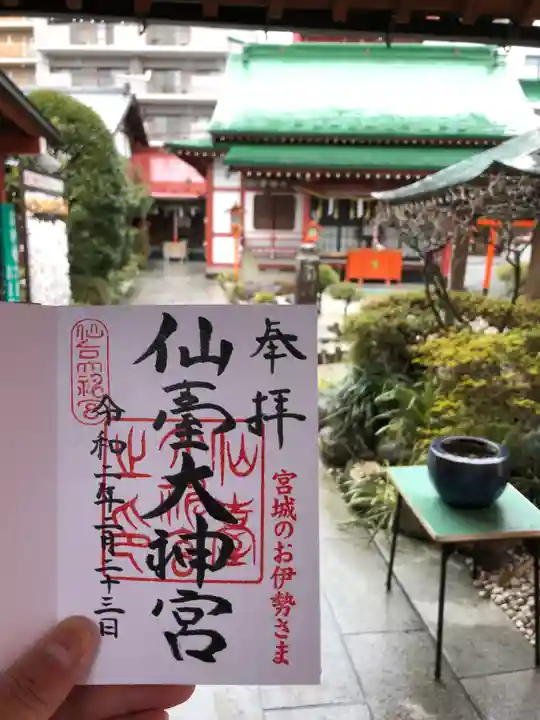 奉拝
宮城のお伊勢さま
仙臺大神宮
令和二年二月二十三日